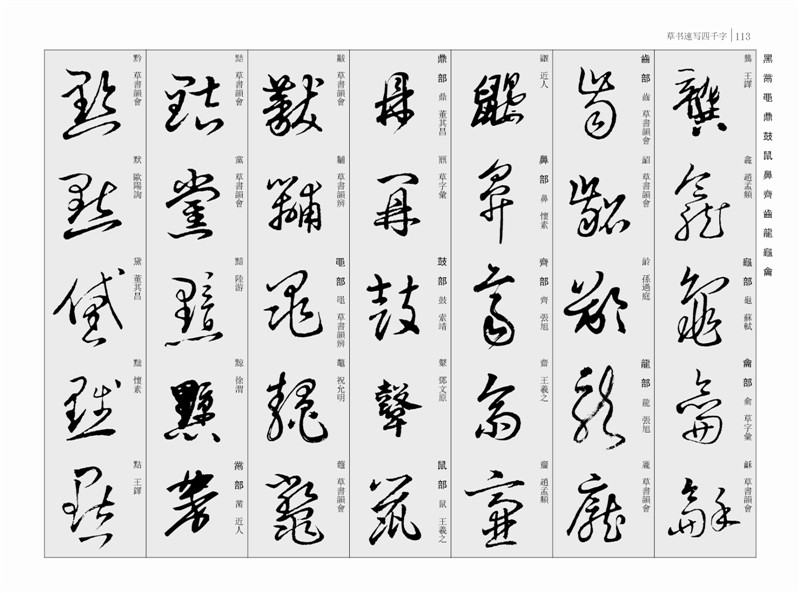 草书速写四千字 113
黑 黹 黽 鼎 鼓 鼠 鼻 齊 齒 龍 龜 龠
龔 王鐸
龕 趙孟頫
龜部 龜 蘇軾
龠部 龠 草字彙
龢 草書韻會
齒部 齒 草書韻會
齠 草書韻會
齡 孫過庭
龍部 龍 張旭
龐 草書韻會
近人
鼻部 鼻 懷素
齊部 齊 張旭
齋 王羲之
趙孟頫
鼎部 鼎 董其昌
草字彙
鼓部 鼓 索靖
鼙 鄧文原
鼠部 鼠 王羲之
黻 草書韻會
黼 草書韻辨
黽部 黽 草書韻辨
鼂 祝允明
鼇 草書韻會
黠 草書韻會
黨 草書韻會
黯 陸游
黥 徐渭
黹部 黹 近人
黔 草書韻會
默 歐陽詢
黛 董其昌
黜 懷素
點 王鐸